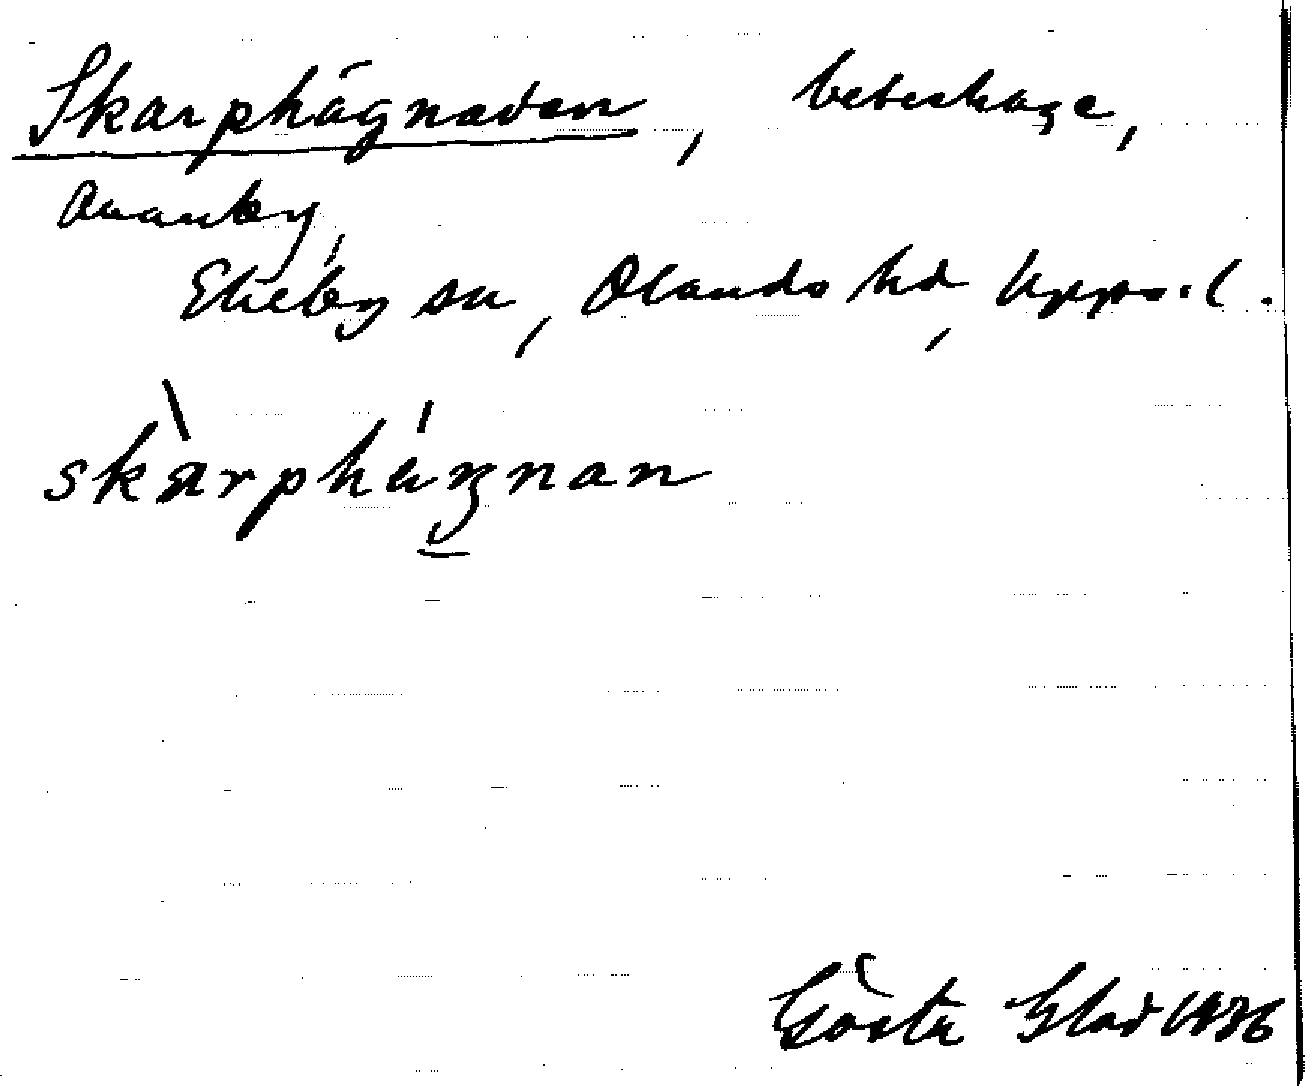 Skarphägnaden, beteshage,
Ovanby,
Ekeby sn, Olands hd, Upps. l.
skàrphágnan
Gösta Glad 1936